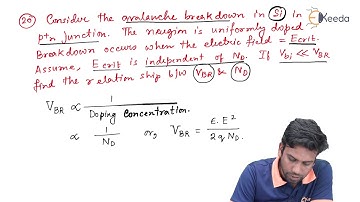 Ekeeda
20) Consider the avalanche breakdown in Si in
p+n junction. The n region is uniformly doped
Breakdown occurs when the electric field = Ecrit.
Assume, Ecrit is independent of ND. If Vbi << VBR
find the relation ship b/w VBR & ND
VBR ∝ 1 / Doping Concentration.
∝ 1 / ND or, VBR = ε. E² / 2 q ND.